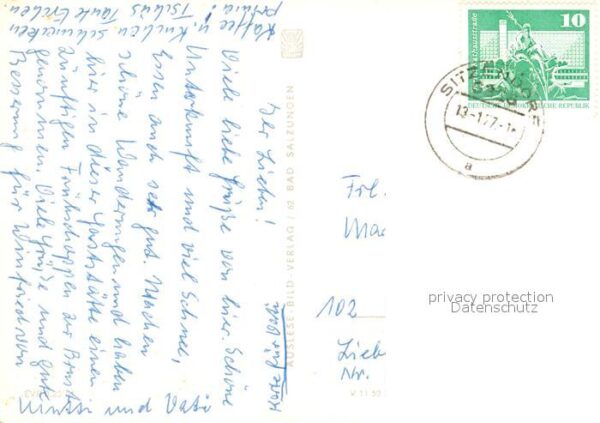 Ihr Lieben!
Viele liebe Grüße von hier. Schöne
Unterkunft und viel Schnee,
Essen auch sehr gut. Machen
schöne Wanderungen und haben
hier in dieser Gaststätte einen
zünftigen Frühschoppen zur Brust
genommen. Viele Grüße und gute
Besserung für Winfried von
Mutti und Vati
Kaffee u. Kuchen schmecken
prima! Tschüs Tante
Karte für
AUSLESE-BILD-VERLAG / 62 BAD SALZUNGEN
V 11 50
10
Rathausstraße
DEUTSCHE DEMOKRATISCHE REPUBLIK
13-1.77-
a
Frl.
102
Nr.
privacy protection
Datenschutz